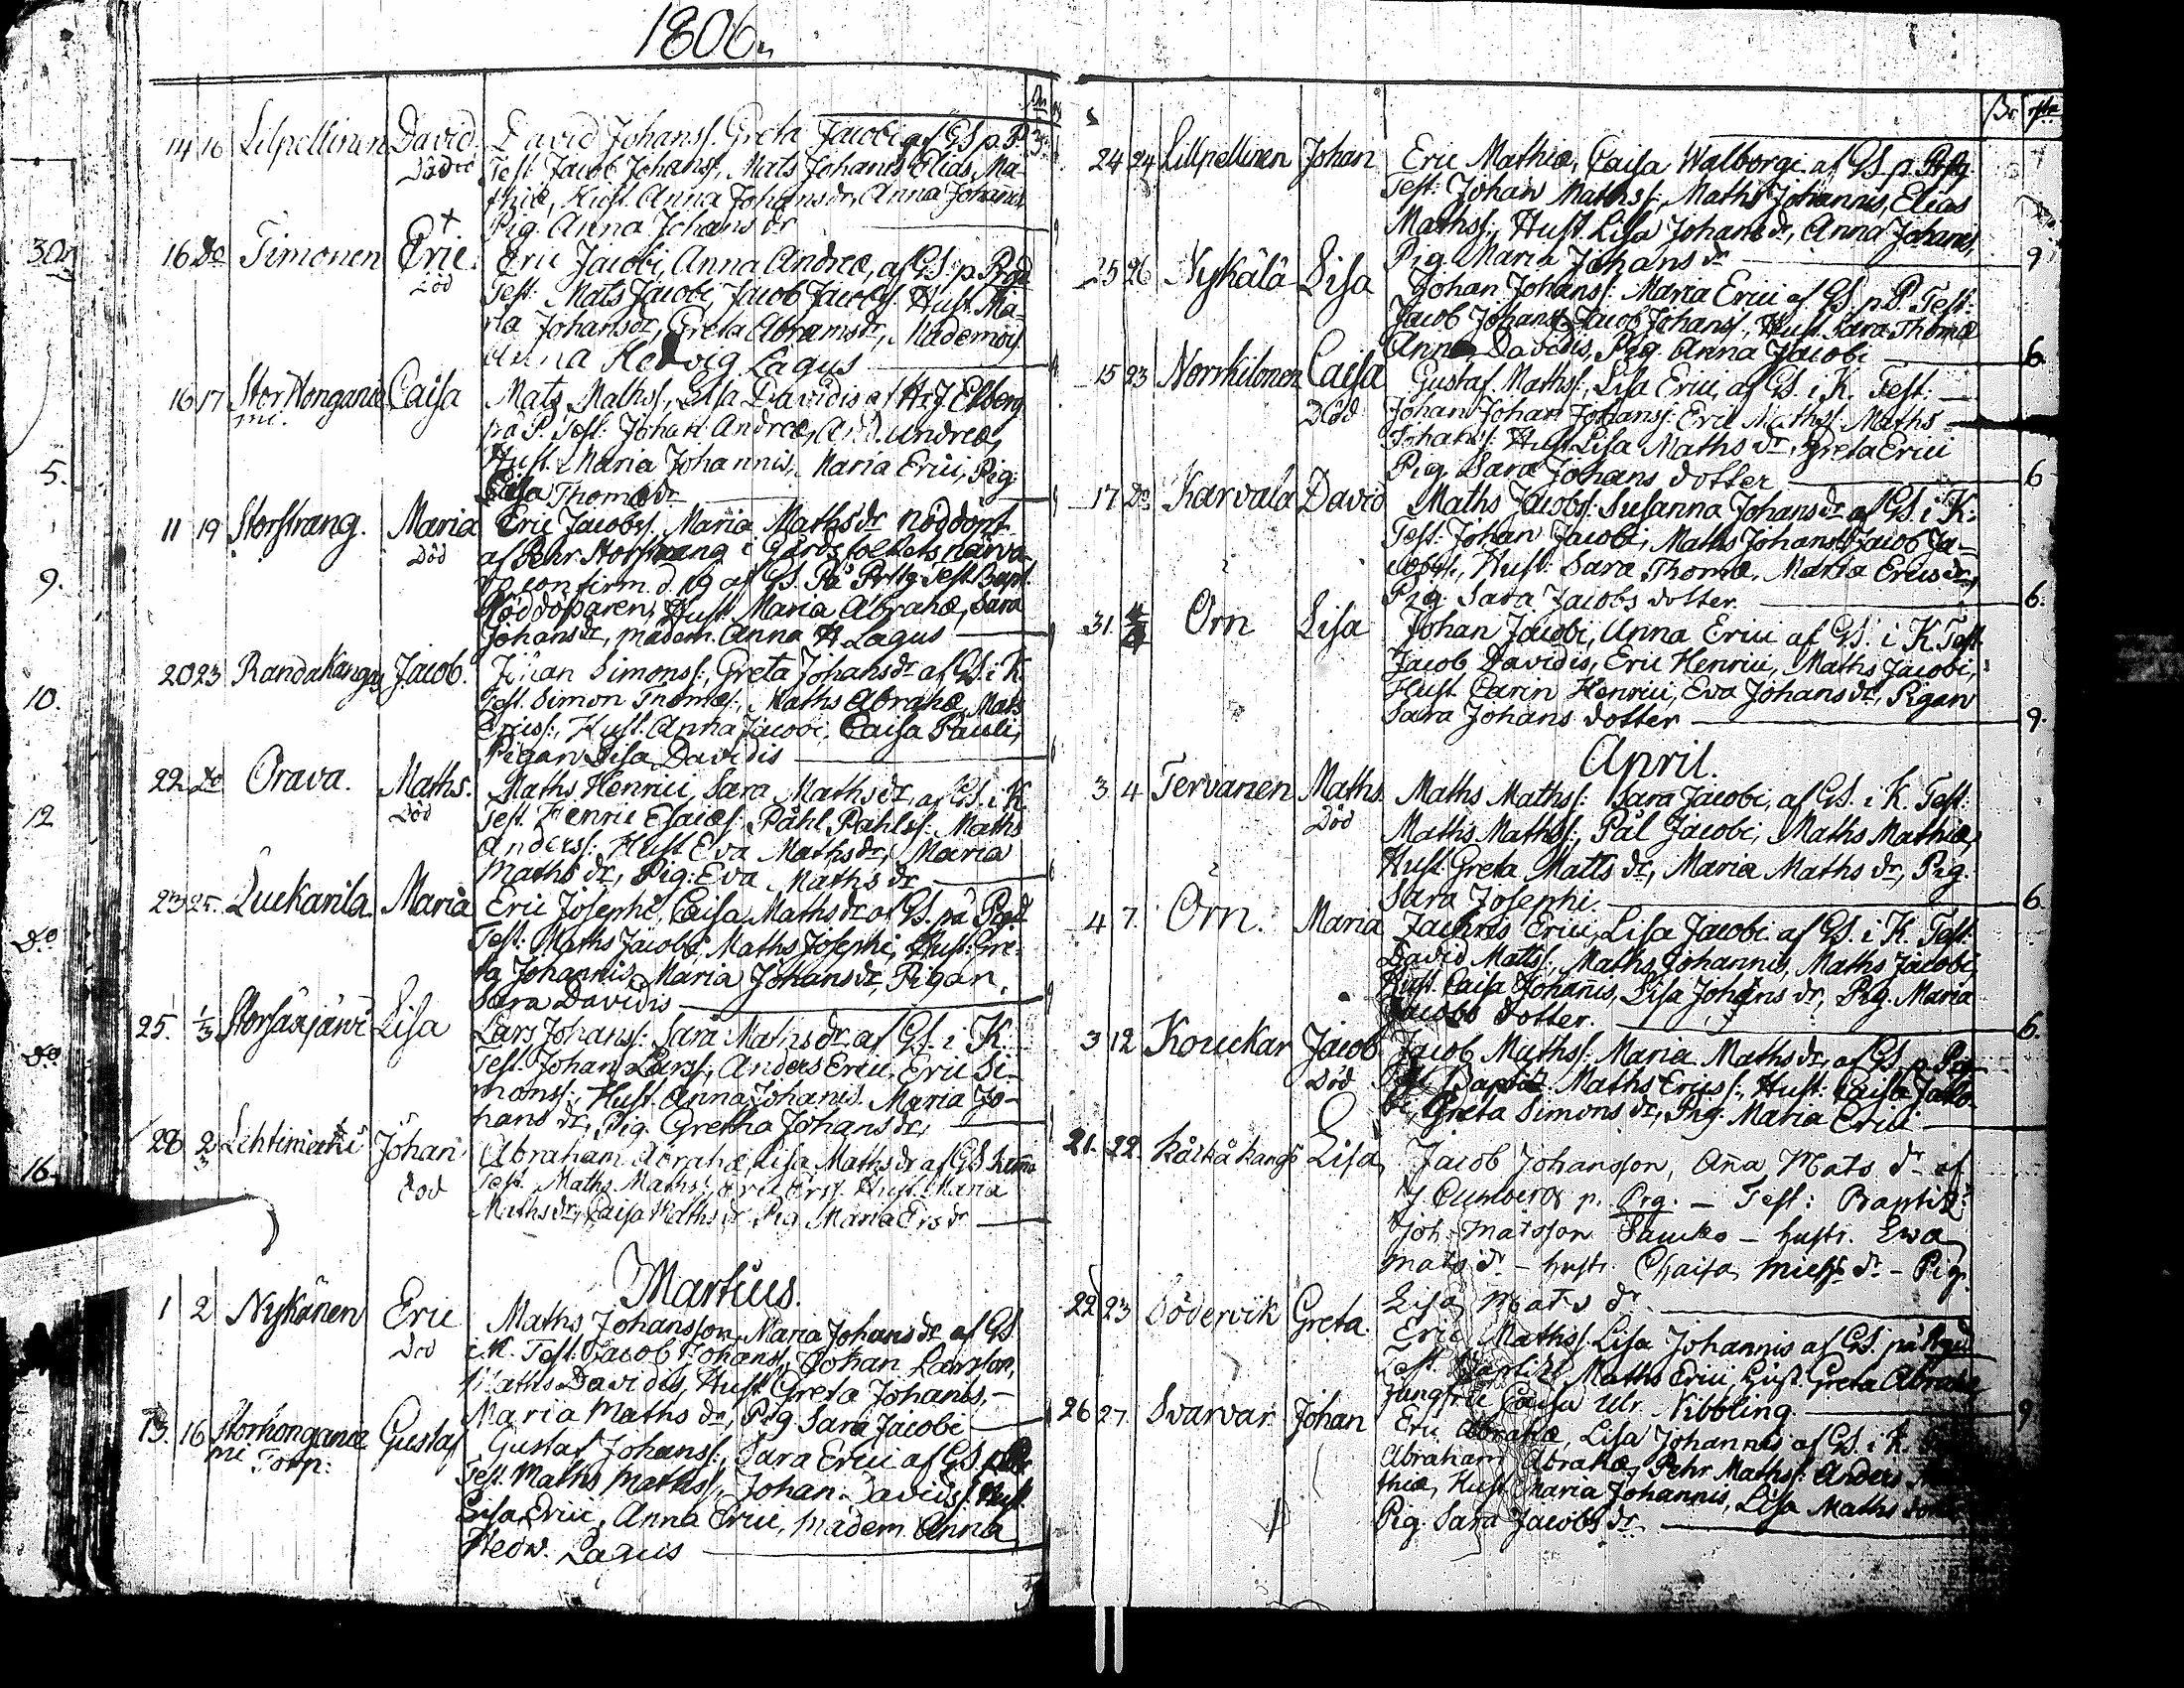 1806.
30.
5.
9.
10.
12
Do
Do
16.
14 16 Lilpellinen David David Johanss. Greta Jacobi af GS. p. P. 3.
Död Test Jacob Johanss, Mats Johannis Elias Ma-
thiæ, Hust. Anna Johansdr, Anna Johannis
Pig. Anna Johans dr
16 Do Timonen Eric Eric Jacobi, Anna Andreæ, af GS. p. Prgd
död Test. Mats Jacobi, Jacob Jacobss. Hust. Ma-
ria Johansdr, Greta Abramsdr, Mademois.
Anna Hedvig Lagus
16 17 Stor Honganie Caisa Mats Mathss., Lisa Davidis af H: J Elberg
mi. på P. Test. Johan Andreæ, And. Andreæ,
Hust. Maria Johannis, Maria Erici, Pig:
Caisa Thomædr
11 19 Storstrang. Maria Eric Jacobss. Maria Mathsdr nöddöpt
Död af Pehr Storstrang i Gårdsfolkets närva-
ro confirm. d. 19 af GS. På Prstg. Test. Bapt.
Nöddöparen, Hust. Maria Abrahæ, Sara
Johansdr, madem. Anna H Lagus
20 23 Randakangas Jacob. Johan Simonss., Greta Johansdr af GS. i K.
Test. Simon Thomæs., Maths Abrahæ, Mats
Ericss., Hust. Anna Jacobi, Caisa Pauli,
Pigan Lisa Davidis
22 do Orava. Maths. Maths Henrici, Sara Mathsdr, af GS. i K
Död Test. Henric Esaiæs. Påhl Påhlss. Maths
Anderss. Hust. Eva Mathsdr, Maria
Maths dr, Pig: Eva Maths dr
23 25. Luckanila Maria Eric Josephi, Caisa Mathsdr af GS. på Prgd
Test. Maths Jacobi, Maths Josephi, Hust: Gre-
ta Johannis, Maria Johansdr, Pigan.
Sara Davidis
25. 1/3 Storsäxjärvi Lisa Lars Johanss. Sara Mathsdr af GS. i K
Test. Johan Larss, Anders Erici, Eric Si-
monss., Hust. Anna Johanis. Maria Jo-
hans dr, Pig. Gretha Johansdr,
28 2/3 Lehtimäki Johan Abraham Abrahæ Lisa Mathsdr af GS.
död Test. Maths Mathss, Eric Erss. Hust. Maria
Mathsdr, Caisa Maths dr Pig. Maria Ers dr
Martius.
1 2 Nykänen Eric Maths Johansson, Maria Johansdr af GS.
Död i K. Test. Jacob Johanss, Johan Larsson,
Maths Davidis, Hust Greta Johanis,
Maria Maths dr, Pig Sara Jacobi
13. 16 Storhonganie Gustaf Gustaf Johanss., Sara Erici af GS.
mi Torp: Test. Maths Mathss, Johan Davidss. Hust.
Lisa Erici, Anna Erici, madem. Anna
Hedw. Lagus
24 24 Lillpellinen Johan Eric Mathiæ, Caisa Walborgi af GS. p. Prstg.
Test: Johan Mathss., Maths Johannis, Elias
Mathss., Hust. Lisa Johansdr, Anna Johanis,
Pig. Maria Johans dr 9
25 26 Nykälä Lisa Johan Johanss: Maria Erici af GS. p. P. Test:
Jacob Johanss Jacob Johanss, Hust. Sara Thomæ
Anna Davidis, Pig. Anna Jacobi 6
15 23 Norrkilonen Caisa Gustaf Mathss:, Lisa Erici, af GS. i K. Test:
Död Johan Johan Johanss. Eric Mathss. Maths
Johanss. Hust. Lisa Maths dr, Greta Erici
Pig. Sara Johans dotter 6
17 Do Karvala David Maths Jacobss: Susanna Johansdr af GS. i K.
Test. Johan Jacobi, Maths Johanss Jacob Ja-
cobss., Hust: Sara Thomæ, Maria Ericsdr,
Pig. Sara Jacobs dotter. 6.
31. Orn Lisa Johan Jacobi, Anna Erici af GS. i K. Test.
Jacob Davidis, Eric Henrici, Maths Jacobi,
Hust. Carin Henrici, Eva Johansdr, Pigan
Sara Johans dotter 9.
April.
3 4 Tervanen Maths. Maths Mathss: Sara Jacobi, af GS. i K. Test:
Död Maths Mathss:, Pål Jacobi, Maths Mathiæ,
Hust. Greta Matts dr, Maria Maths dr, Pig.
Sara Josephi. 6
4 7. Orn. Maria Zachris Erici, Lisa Jacobi af GS. i K. Test.
David Matss:, Maths Johannis, Maths Jacobi,
Hust. Caisa Johanis, Lisa Johans dr, Pig. Maria
Jacobs dotter. 6.
3 12 Kouckar Jacob Jacob Mathss: Maria Mathsdr, af GS. p. Prg
Död Test Baptiz. Maths Ericss:, Hust: Caisa Jaco-
bi, Greta Simons dr, Pig. Maria Erici
21. 22. Kårkåkangs Lisa Jacob Johansson, Aña Mats dr af
p. Prg. — Test: Baptiz:
Joh. Matsson Saucko — hustr. Ewa
Mats dr — hustr. Chaisa Michs dr — Pig.
Lisa Mats dr
22 23 Södervik Greta. Eric Mathss. Lisa Johannis af GS. på Prgd
Test. Baptizt Maths Erici, Hust. Greta Abrahæ,
Jungfru Caisa Ulr. Nibbling. 9
26 27 Svarvar Johan Eric Abrahæ, Lisa Johannis af GS. i K.
Abraham Abrahæ, Pehr Mathss: Anders
thiæ, Hust. Maria Johannis, Lisa Maths
Pig. Sara Jacobs dr.